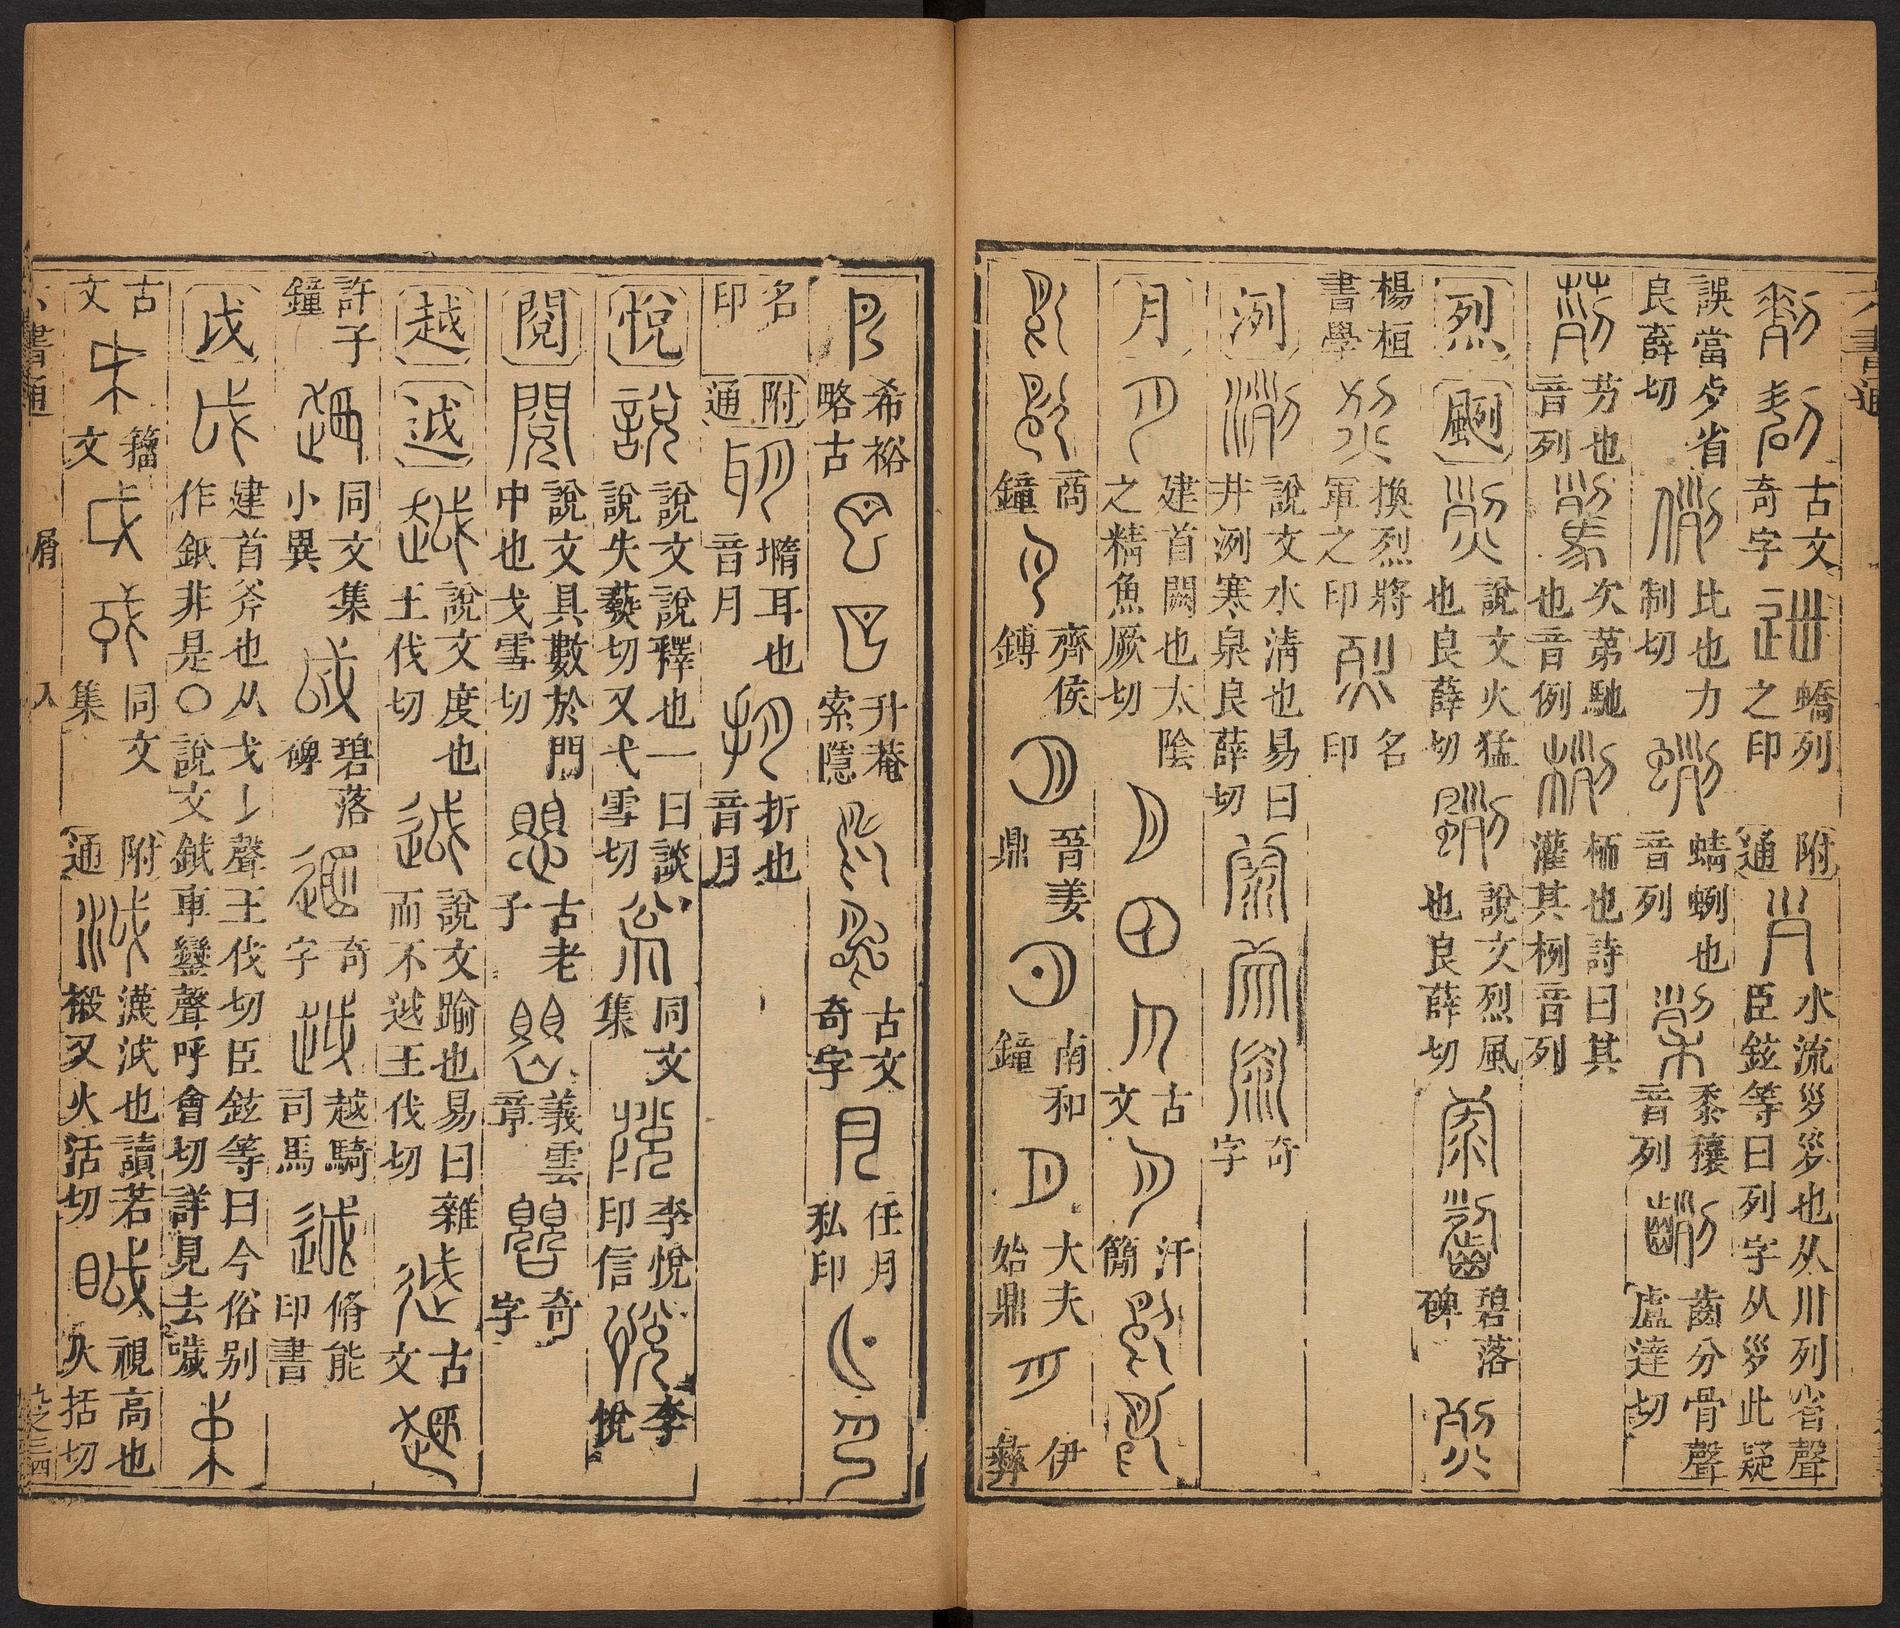 六書通
古文奇字 蟜列之印 附通 水流𡿪𡿪也从川列省聲臣鉉等曰列字从𡿪此疑
誤當歺省 良薛切 比也力制切 蜻蛚也音列 黍穰音列 齒分骨聲盧達切
艻也音列 次第馳也音例 栭也詩曰其灌其栵音列
烈 颲 說文火猛也良薛切 說文烈風也良薛切 碧落碑
楊桓書學 換烈將軍之印 名印
洌 說文水清也易曰井洌寒泉良薛切 奇字
月 建首闕也太陰之精魚厥切 古文 汗簡
商鐘 齊侯鎛 晉姜鼎 南和鐘 大夫始鼎 伊彝
希裕略古 升菴索隱 古文奇字 任月私印
名印 附通 墮耳也音月 折也音月
悅 說文說釋也一曰談說失爇切又弋雪切 同文集 李悅印信 李悅
閱 說文具數於門中也弋雪切 古老子 義雲章 奇字
越 𨒋 說文度也王伐切 說文踰也易曰雜而不𨒋王伐切 古文
許子鐘 同文集小異 碧落碑 奇字 越騎司馬 脩能印書
戉 建首斧也从戈𠄌聲王伐切臣鉉等曰今俗别作鉞非是○說文鉞車鑾聲呼會切詳見去噦
古文 籀文 同文集 附通 瀎泧也讀若椴又火活切 視高也火括切
六書通 屑 入 九之三四